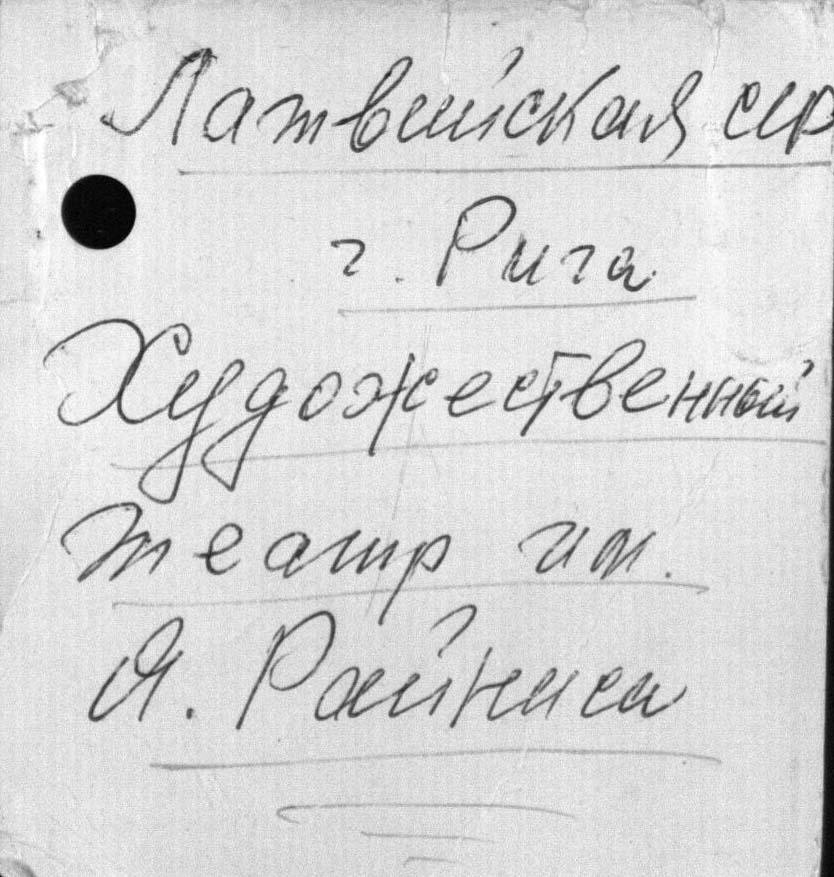 Латвийская сср
г. Рига
Художественный
театр им.
Я. Райниса